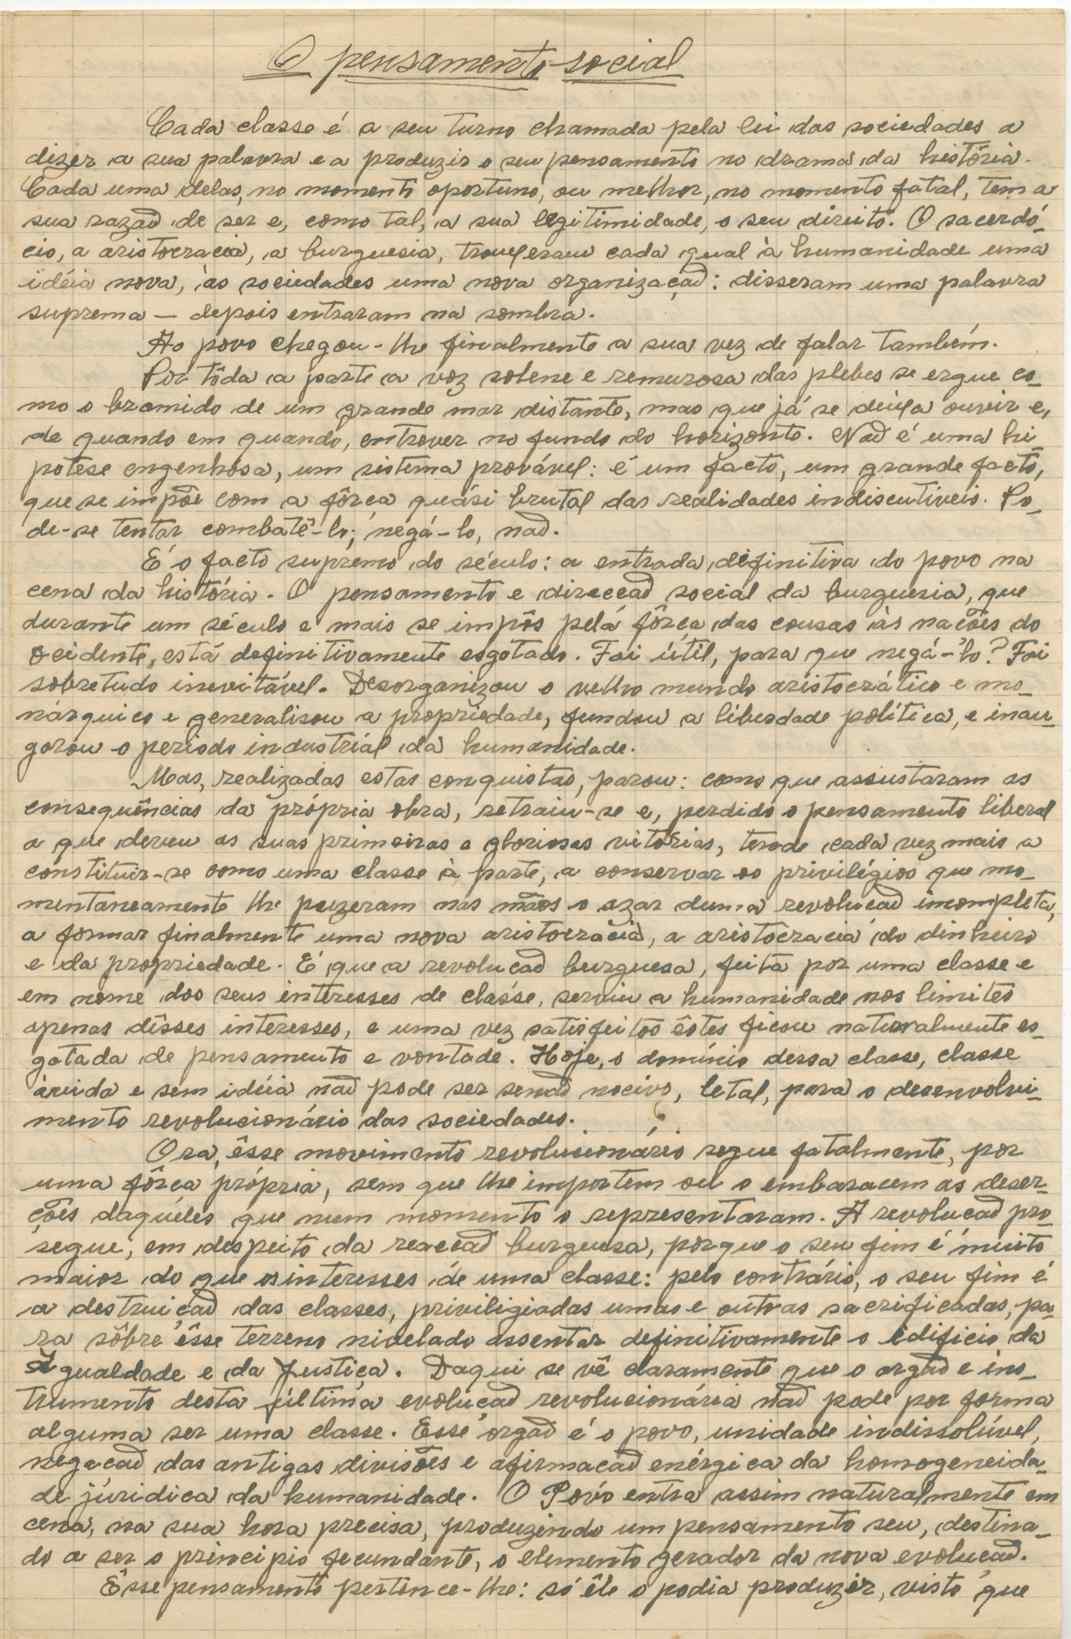 O pensamento social
Cada classe é a seu turno chamada pela lei das sociedades a
dizer a sua palavra e a produzir o seu pensamento no drama da história.
Cada uma delas, no momento oportuno, ou melhor, no momento fatal, tem a
sua razão de ser e, como tal, a sua legitimidade, o seu direito. O sacerdó-
cio, a aristocracia, a burguesia, trouxeram cada qual à humanidade uma
idéia nova, às sociedades uma nova organização: disseram uma palavra
suprema — depois entraram na sombra.
Ao povo chegou-lhe finalmente a sua vez de falar também.
Por tôda a parte a voz solene e rumurosa das plebes se ergue co-
mo o bramido de um grande mar distante, mas que já se deixa ouvir e,
de quando em quando, entrever no fundo do horizonte. Não é uma hi-
potese engenhosa, um sistema provável: é um facto, um grande facto,
que se impõe com a fôrça quási brutal das realidades indiscutiveis. Po-
de-se tentar combatê-lo; negá-lo, não.
É o facto supremo do século: a entrada definitiva do povo na
cena da história. O pensamento e direcção social da burguesia, que
durante um século e mais se impôs pela fôrça das cousas às nações do
ocidente, está definitivamente esgotado. Foi útil, para que negá-lo? Foi
sobretudo inevitável. Desorganizou o velho mundo aristocrático e mo-
nárquico e generalisou a propriedade, fundou a liberdade política, e inau-
gorou o periodo industrial da humanidade.
Mas, realizadas estas conquistas, parou: como que assustaram as
consequências da própria obra, retraiu-se e, perdido o pensamento liberal
a que deveu as suas primeiras e gloriosas vitórias, tende cada vez mais a
constituir-se como uma classe à parte, a conservar os privilégios que mo-
mentaneamente lhe puzeram nas mãos o azar duma revolução incompleta,
a formar finalmente uma nova aristocracia, a aristocracia do dinheiro
e da propriedade. É que a revolução burguesa, feita por uma classe e
em nome dos seus interesses de classe, serviu a humanidade nos limites
apenas dêsses interesses, e uma vez satisfeitos êstes ficou naturalmente es-
gotada de pensamento e vontade. Hoje, o domínio dessa classe, classe
ávida e sem idéia não pode ser senão nocivo, letal, para o desenvolvi-
mento revolucionário das sociedades.
Ora, êsse movimento revolucionário segue fatalmente, por
uma fôrça própria, sem que lhe importem ou o embaracem as deser-
ções daquêles que num momento o representaram. A revolução pro-
segue, em despeito da reacção burguesa, porque o seu fim é muito
maior do que os interesses de uma classe: pelo contrário, o seu fim é
a destruição das classes, priviligiadas umas e outras sacrificadas, pa-
ra sôbre êsse terreno nivelado assentar definitivamente o edificio da
Igualdade e da Justiça. Daqui se vê claramente que o orgão e ins-
trumento desta última evolução revolucionária não pode por forma
alguma ser uma classe. Esse orgão é o povo, unidade indissolúvel,
negação das antigas divisões e afirmação enérgica da homogeneida-
de júridica da humanidade. O Povo entra assim naturalmente em
cena, na sua hora precisa, produzindo um pensamento seu, destina-
do a ser o principio fecundante, o elemento gerador da nova evolução.
Êsse pensamento pertence-lhe: só êle o podia produzir, visto que